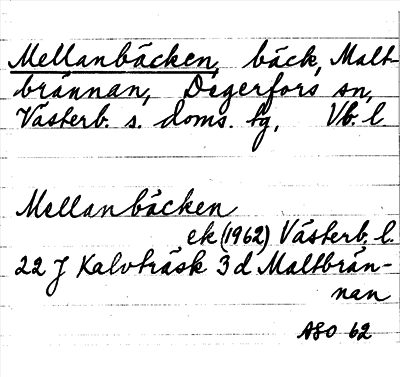 Mellanbäcken, bäck, Malt-
brännan, Degerfors sn,
Västerb. s. doms. tg, Vb. l.
Mellanbäcken
ek (1962) Västerb. l.
22 J Kalvträsk 3d Maltbrän-
nan
ASO 62